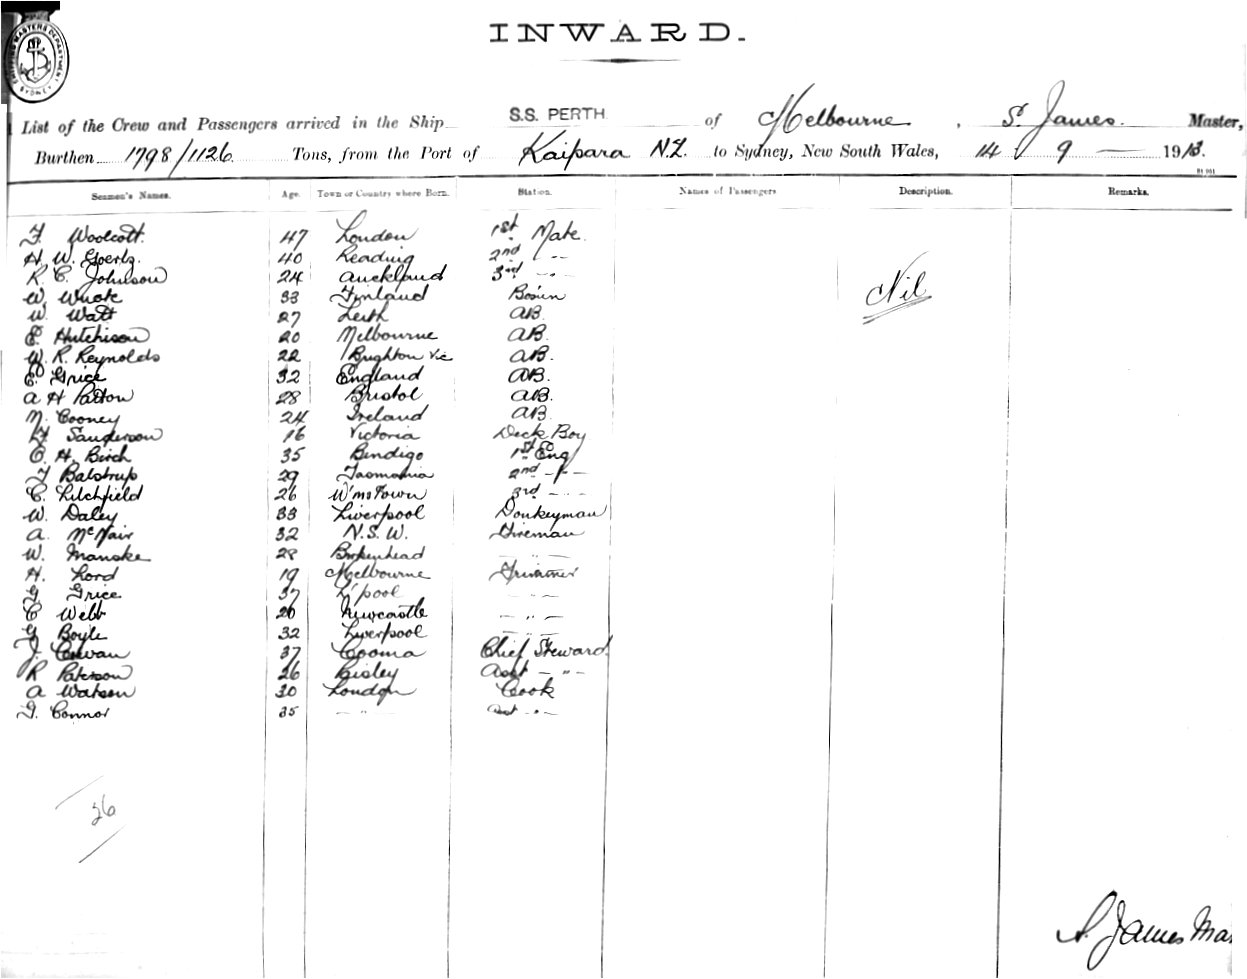 SHIPPING MASTERS DEPARTMENT SYDNEY
INWARD.
List of the Crew and Passengers arrived in the Ship S.S. PERTH of Melbourne, S. James. Master,
Burthen 1798/1126 Tons, from the Port of Kaipara N.Z. to Sydney, New South Wales, 14 9 — 1913.
Seamen's Names. Age. Town or Country where Born. Station. Names of Passengers Description. Remarks.
F. Woolcott. 47 London 1st Mate.
H. W. Goertz. 40 Reading 2nd "
R. C. Johnson 24 Auckland 3rd "
W. 33 Finland Bosun
W. Watt 27 Leith AB.
E. Hutchison 20 Melbourne AB.
W. R. Reynolds 22 Brighton Vic AB.
E. Grice 32 England AB.
A H Patton 28 Bristol AB.
N. Cooney 24 Ireland AB.
Sanderson 16 Victoria Deck Boy
C. H. Birch 35 Bendigo 1st Eng
F Balstrup 29 Tasmania 2nd "
C. Litchfield 26 W'mstown 3rd "
W. Daley 33 Liverpool Donkeyman
A. McNair 32 N.S.W. Fireman
W. Manske 28 "
H. Lord 19 Melbourne Trimmer
G Grice 37 L'pool "
C Webb 20 Newcastle "
G Boyle 32 Liverpool "
J. 37 Cooma Chief Steward.
R Paterson 26 Bisley Asst "
A Watson 30 London Cook
G. Connor 35 " Asst "
Nil
26
S. James Mas